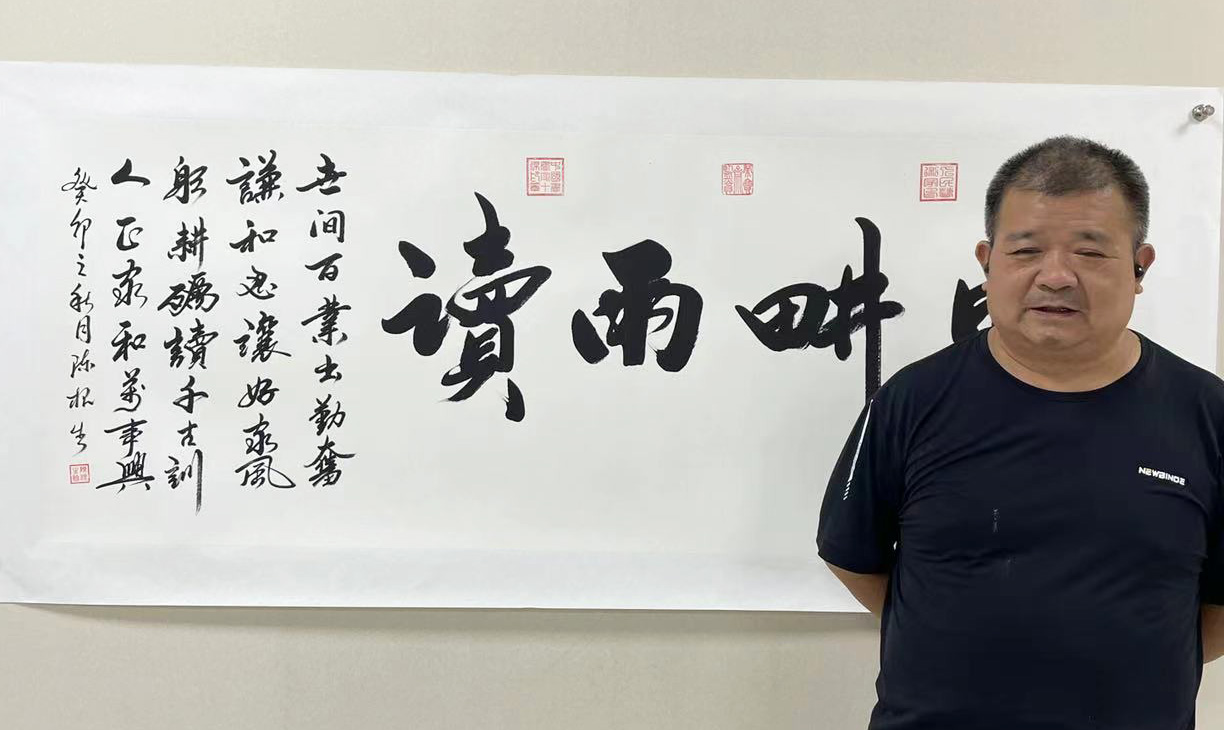 畊雨讀
世间百業出勤奮
謙和忍讓好家風
躬耕礪讀千古訓
人正家和萬事興
癸卯之秋月陈根生
NEWBINDE